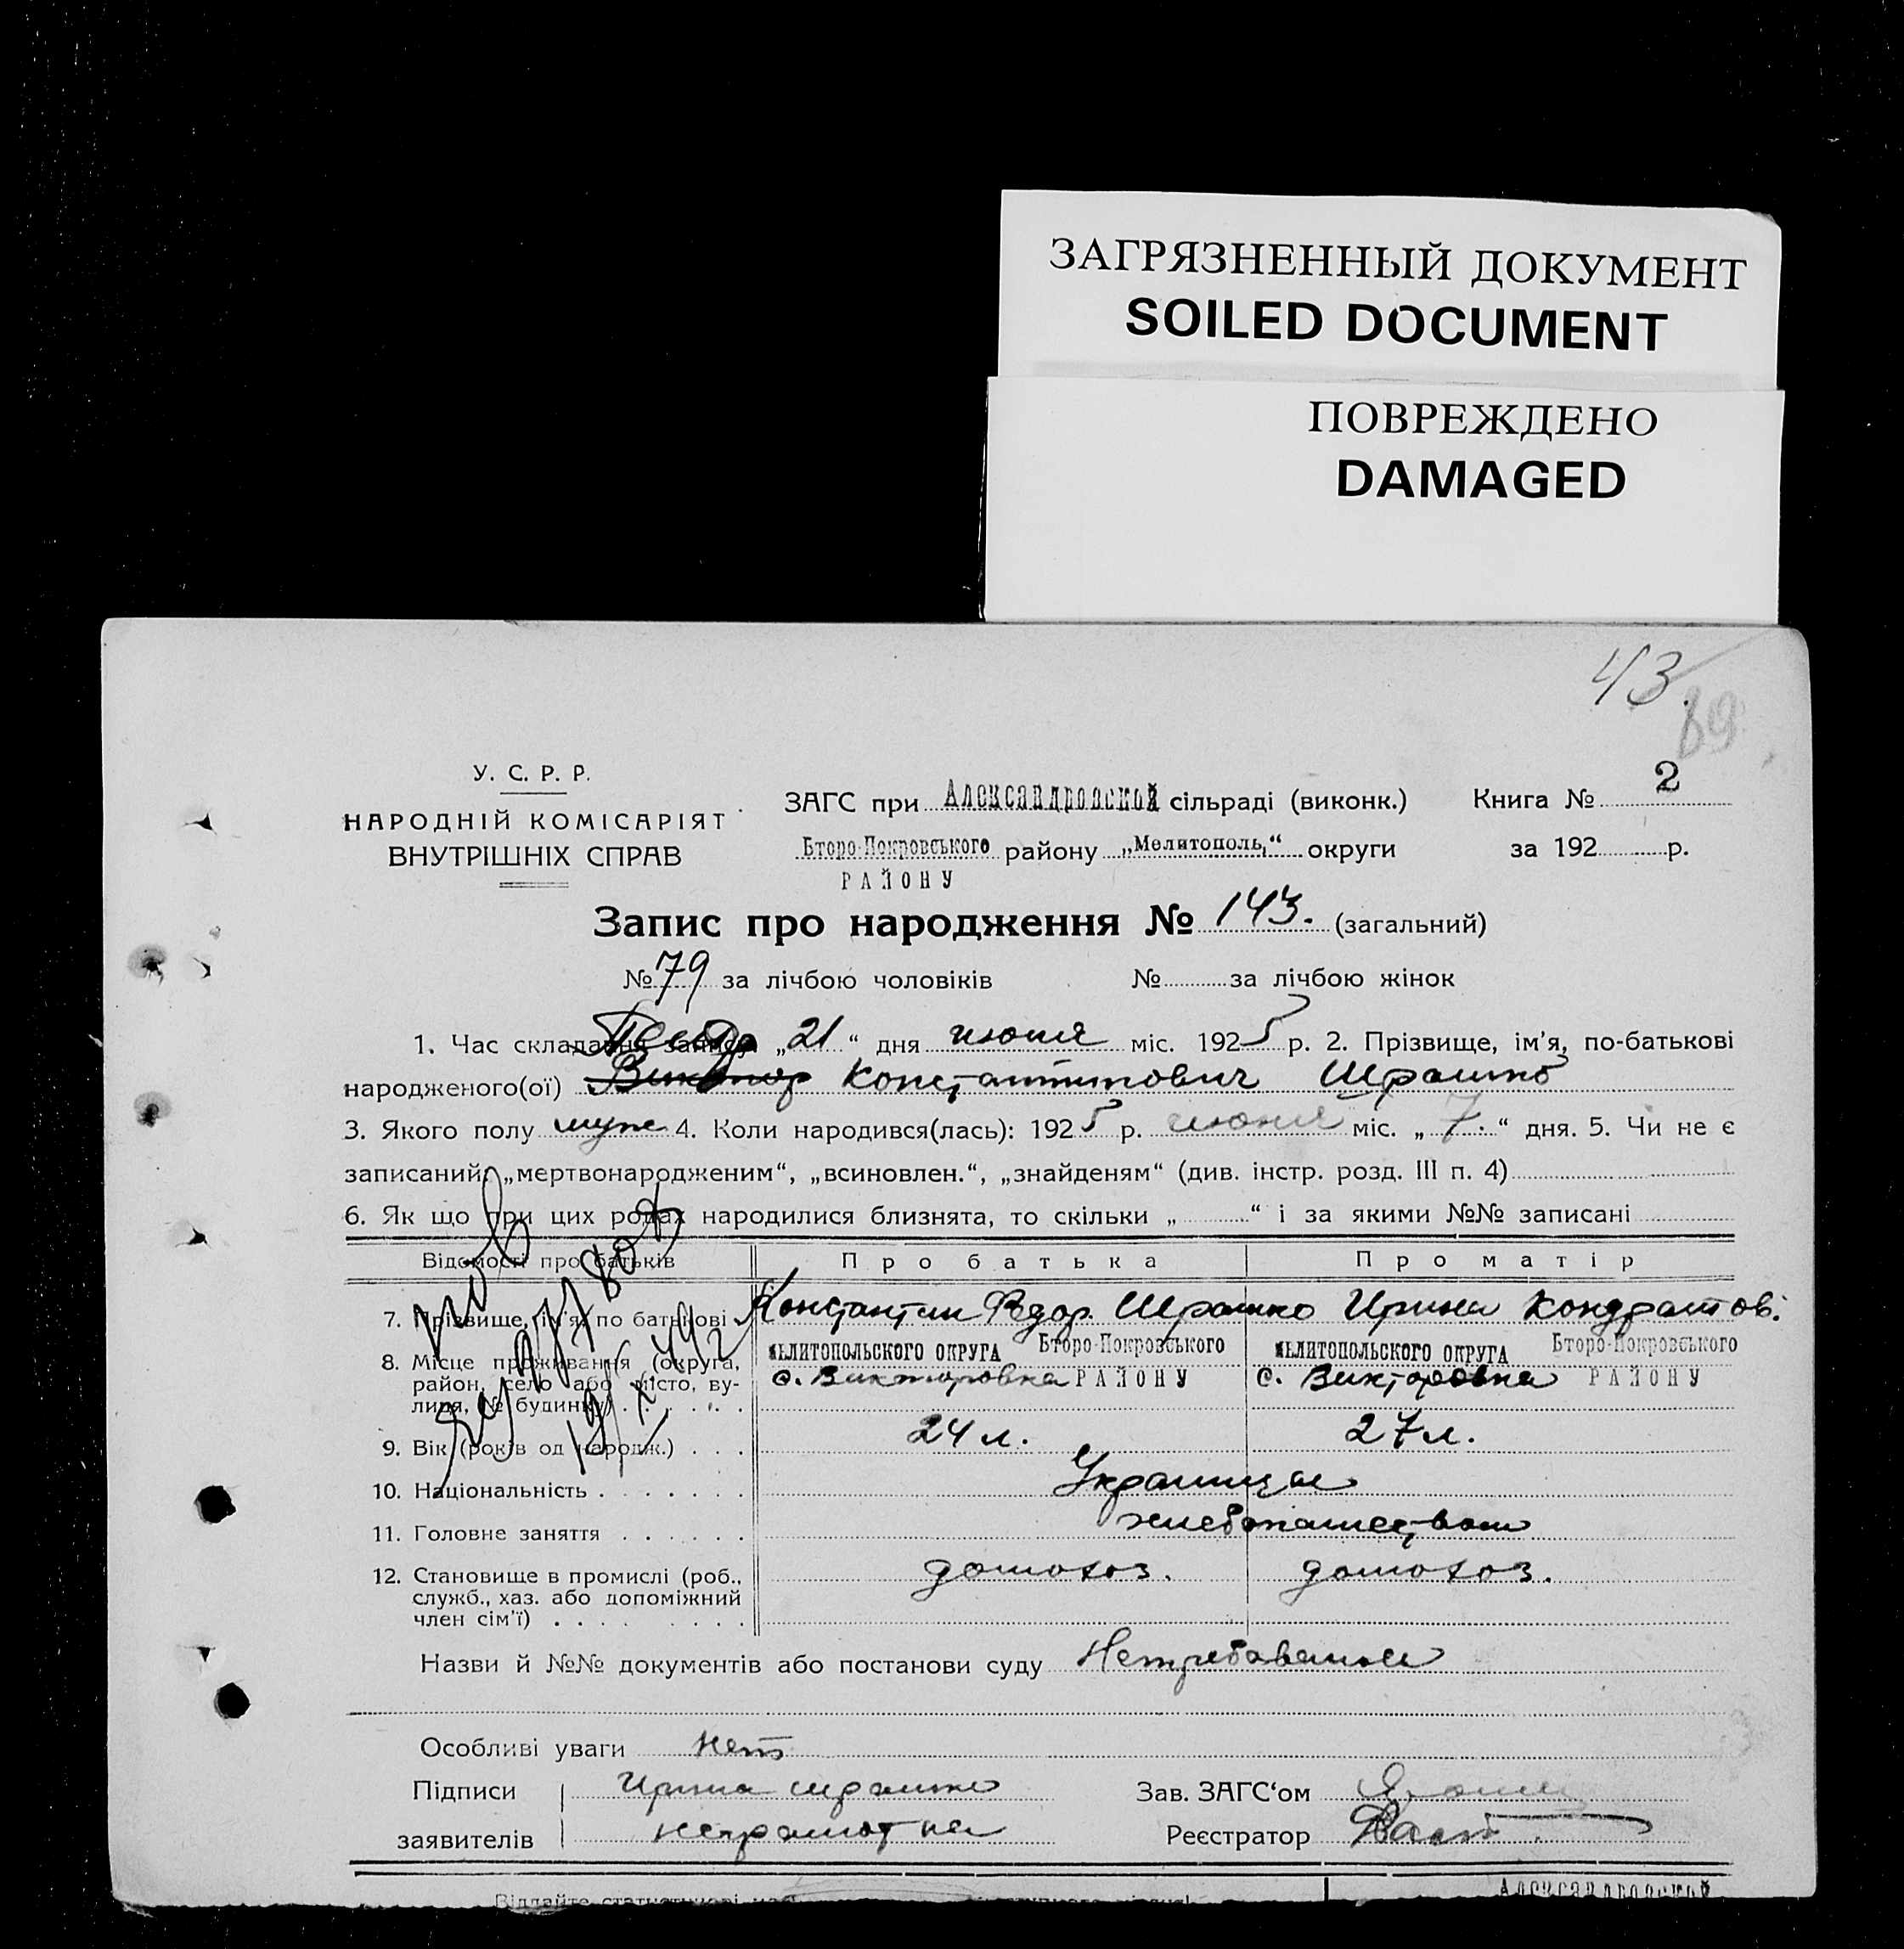 ЗАГРЯЗНЕННЫЙ ДОКУМЕНТ
SOILED DOCUMENT
ПОВРЕЖДЕНО
DAMAGED
43
89
У. С. Р. Р.
НАРОДНІЙ КОМІСАРІЯТ
ВНУТРІШНІХ СПРАВ
ЗАГС при Александровской сільраді (виконк.) Книга № 2
Второ-Покровського району „Мелитополь“ округи за 192 р.
РАЙОНУ
Запис про народження № 143. (загальний)
№ 79 за лічбою чоловіків № за лічбою жінок
1. Час складання запису „21“ дня июня міс. 1925 р. 2. Прізвище, ім’я, по-батькові
народженого(ої) Виктор Константинович Шрамко
3. Якого полу муж 4. Коли народився(лась): 1925 р. июня міс. „7.“ дня. 5. Чи не є
записаний: „мертвонародженим“, „всиновлен.“, „знайденям“ (див. інстр. розд. III п. 4)
6. Як що при цих родах народилися близнята, то скільки „ “ і за якими №№ записані
Відомості про батьків Про батька Про матір
7. Прізвище, ім’я, по батькові Константин Федор. Шрамко Ирина Кондратов.
8. Місце проживання (округа, район, село або місто, вулиця, № будинку) МЕЛИТОПОЛЬСКОГО ОКРУГА Второ-Покровського МЕЛИТОПОЛЬСКОГО ОКРУГА Второ-Покровського
с. Викторовка РАЙОНУ с. Викторовка РАЙОНУ
9. Вік (років од народж.) 24 л. 27 л.
10. Національність Украинцы
11. Головне заняття хлебопашеством
12. Становище в промислі (роб., домохоз. домохоз.
служб., хаз. або допоміжний
член сім’ї)
Назви й №№ документів або постанови суду
Особливі уваги нет
Підписи Ирина Шрамко Зав. ЗАГС‘ом
заявителів неграмотная Реєстратор
Александровской